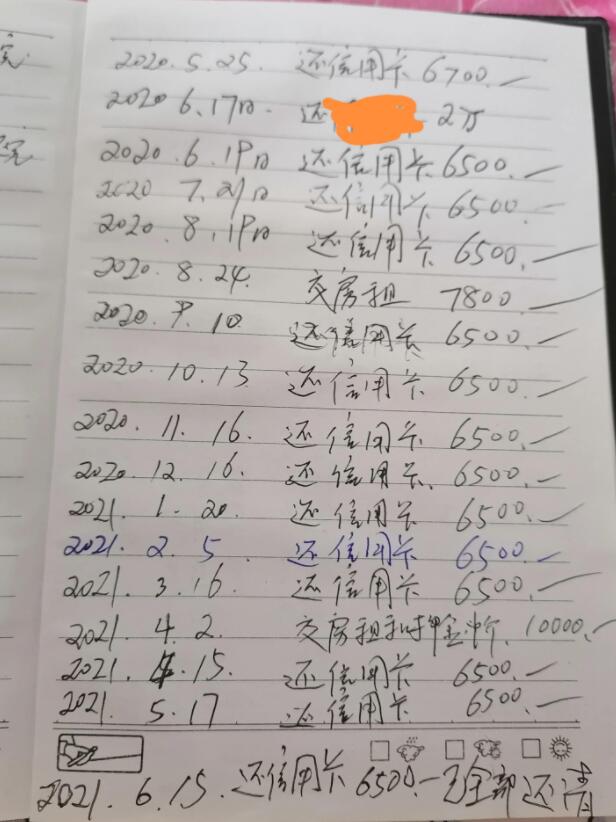 2020.5.25. 还信用卡 6700.一
2020 6.17日. 还 2万
2020.6.19日 还信用卡 6500.一
2020 7.21日 还信用卡 6500.一
2020.8.19日 还信用卡 6500.一
2020.8.24. 交房租 7800一
2020.9.10. 还信用卡 6500.一
2020.10.13 还信用卡 6500.一
2020.11.16. 还信用卡 6500.一
2020.12.16. 还信用卡. 6500.一
2021.1.20. 还信用卡 6500.一
2021.2.5. 还信用卡 6500一
2021.3.16. 还信用卡 6500.一
2021.4.2. 交房租和押金 10000.一
2021.4.15. 还信用卡 6500.一
2021.5.17 还信用卡 6500.一
2021.6.15.还信用卡 6500.一已全部还清